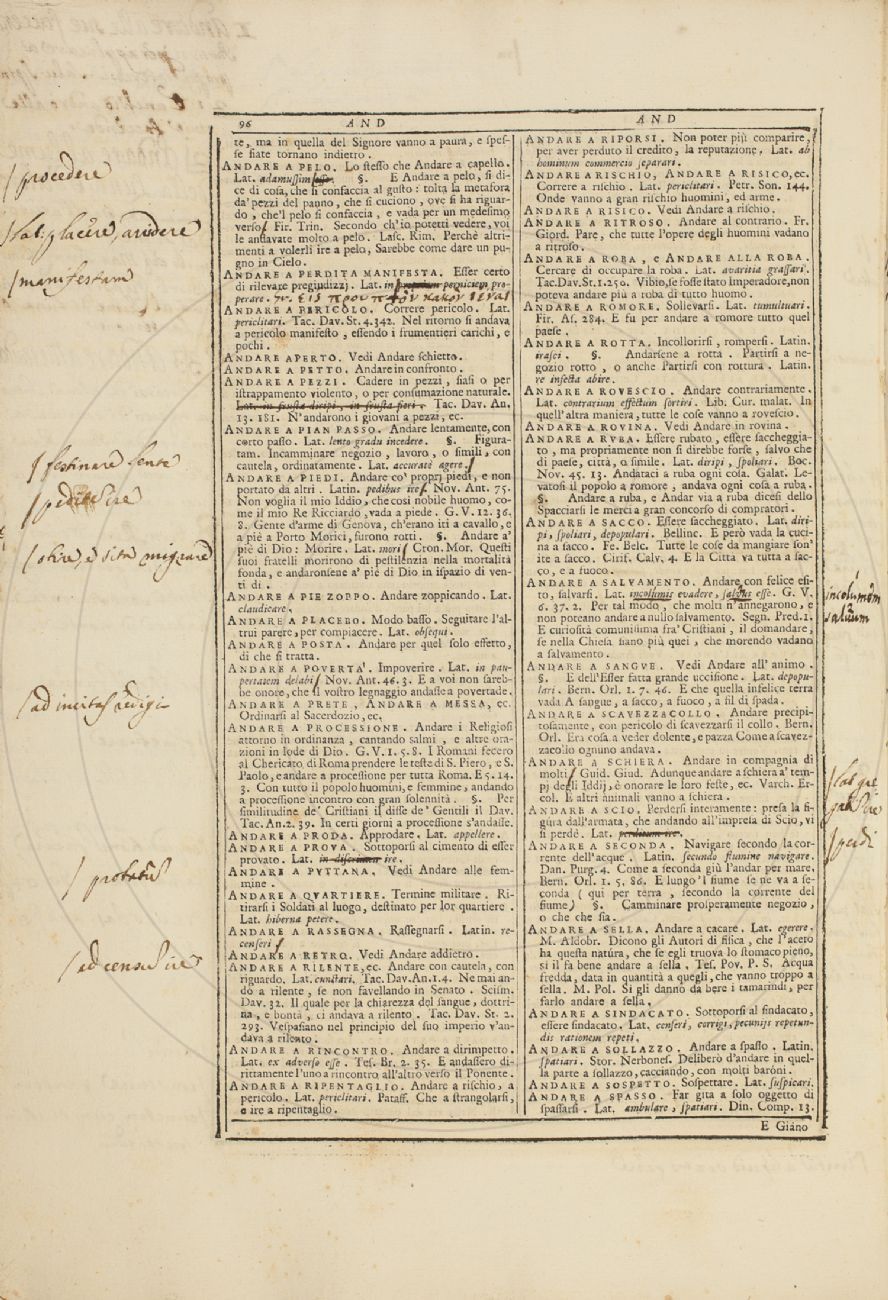 96 AND
AND
te, ma in quella del Signore vanno a paura, e spes-
se fiate tornano indietro.
ANDARE A PELO. Lo stesso che Andare a capello.
Lat. adamussim §. E Andare a pelo, si di-
ce di cosa, che si confaccia al gusto: tolta la metafora
da' pezzi del panno, che si cuciono, ove si ha riguar-
do, che'l pelo si confaccia, e vada per un medesimo
verso Fir. Trin. Secondo ch'io potetti vedere, voi
le andavate molto a pelo. Lasc. Rim. Perchè altri-
menti a volerli ire a pelo, Sarebbe come dare un pu-
gno in Cielo.
ANDARE A PERDITA MANIFESTA. Esser certo
di rilevare pregiudizj. Lat. in perniciem pro-
perare.
ANDARE A PERICOLO. Correre pericolo. Lat.
periclitari. Tac. Dav. St. 4. 342. Nel ritorno si andava
a pericolo manifesto, essendo i frumentieri carichi, e
pochi.
ANDARE APERTO. Vedi Andare schietto.
ANDARE A PETTO. Andare in confronto.
ANDARE A PEZZI. Cadere in pezzi, siasi o per
istrappamento violento, o per consumazione naturale.
Lat. in frusta diripi, in frusta fieri. Tac. Dav. An.
13. 181. N'andarono i giovani a pezzi, ec.
ANDARE A PIAN PASSO. Andare lentamente, con
corto passo. Lat. lento gradu incedere. §. Figura-
tam. Incamminare negozio, lavoro, o simili, con
cautela, ordinatamente. Lat. accuratè agere.
ANDARE A PIEDI. Andare co' proprj piedi, e non
portato da altri. Latin. pedibus ire. Nov. Ant. 75.
Non voglia il mio Iddio, che così nobile huomo, co-
me il mio Re Ricciardo, vada a piede. G. V. 12. 36.
8. Gente d'arme di Genova, ch'erano iti a cavallo, e
a piè a Porto Morici, furono rotti. §. Andare a'
piè di Dio: Morire. Lat. mori Cron. Mor. Questi
suoi fratelli morirono di pestilenzia nella mortalità
fonda, e andaronsene a' piè di Dio in ispazio di ven-
ti dì.
ANDARE A PIE ZOPPO. Andare zoppicando. Lat.
claudicare.
ANDARE A PLACEBO. Modo basso. Seguitare l'al-
trui parere, per compiacere. Lat. obsequi.
ANDARE A POSTA. Andare per quel solo effetto,
di che si tratta.
ANDARE A POVERTA'. Impoverire. Lat. in pau-
pertatem delabi Nov. Ant. 46. 3. E a voi non sareb-
be onore, che il vostro legnaggio andasse a povertade.
ANDARE A PRETE, ANDARE A MESSA, ec.
Ordinarsi al Sacerdozio, ec.
ANDARE A PROCESSIONE. Andare i Religiosi
attorno in ordinanza, cantando salmi, e altre ora-
zioni in lode di Dio. G. V. 1. 5. 8. I Romani fecero
al Chericato di Roma prendere le teste di S. Piero, e S.
Paolo, e andare a processione per tutta Roma. E 5. 14.
3. Con tutto il popolo huomini, e femmine, andando
a processione incontro con gran solennità. §. Per
similitudine de' Cristiani il disse de' Gentili il Dav.
Tac. An. 2. 39. In certi giorni a processione s'andasse.
ANDARE A PRODA. Approdare. Lat. appellere.
ANDARE A PROVA. Sottoporsi al cimento di esser
provato. Lat. in discrimen ire.
ANDARE A PUTTANA. Vedi Andare alle fem-
mine.
ANDARE A QVARTIERE. Termine militare. Ri-
tirarsi i Soldati al luogo, destinato per lor quartiere.
Lat. hiberna petere.
ANDARE A RASSEGNA. Rassegnarsi. Latin. re-
censeri
ANDARE A RETRO. Vedi Andare addietro.
ANDARE A RILENTE, ec. Andare con cautela, con
riguardo. Lat. cunctari. Tac. Dav. An. 1. 4. Ne mai an-
dò a rilente, se non favellando in Senato. Scism.
Dav. 32. Il quale per la chiarezza del sangue, dottri-
na, e bontà, ci andava a rilento. Tac. Dav. St. 2.
293. Vespasiano nel principio del suo imperio v'an-
dava a rilento.
ANDARE A RINCONTRO. Andare a dirimpetto.
Lat. ex adverso esse. Tes. Br. 2. 35. E andassero di-
rittamente l'uno a rincontro all'altro verso il Ponente.
ANDARE A RIPENTAGLIO. Andare a rischio, a
pericolo. Lat. periclitari. Pataff. Che a strangolarsi,
e ire a ripentaglio.
ANDARE A RIPORSI. Non poter più comparire,
per aver perduto il credito, la reputazione. Lat. ab
hominum commercio separari.
ANDARE A RISCHIO, ANDARE A RISICO, ec.
Correre a rischio. Lat. periclitari. Petr. Son. 144.
Onde vanno a gran rischio huomini, ed arme.
ANDARE A RISICO. Vedi Andare a rischio.
ANDARE A RITROSO. Andare al contrario. Fr.
Giord. Pare, che tutte l'opere degli huomini vadano
a ritroso.
ANDARE A ROBA, e ANDARE ALLA ROBA.
Cercare di occupare la roba. Lat. avaritia grassari.
Tac. Dav. St. 1. 250. Vibio, se fosse stato Imperadore, non
poteva andare più a roba di tutto huomo.
ANDARE A ROMORE. Sollevarsi. Lat. tumultuari.
Fir. As. 284. E fu per andare a romore tutto quel
paese.
ANDARE A ROTTA. Incollorirsi, rompersi. Latin.
irasci. §. Andarsene a rotta. Partirsi a ne-
gozio rotto, o anche Partirsi con rottura. Latin.
re infecta abire.
ANDARE A ROVESCIO. Andare contrariamente.
Lat. contrarium effectum sortiri. Lib. Cur. malat. In
quell'altra maniera, tutte le cose vanno a rovescio.
ANDARE A ROVINA. Vedi Andare in rovina.
ANDARE A RVBA. Essere rubato, essere saccheggia-
to, ma propriamente non si direbbe forse, salvo che
di paese, città, o simile. Lat. diripi, spoliari. Boc.
Nov. 45. 13. Andaraci a ruba ogni cosa. Galat. Le-
vatosi il popolo a romore, andava ogni cosa a ruba.
§. Andare a ruba, e Andar via a ruba dicesi dello
Spacciarsi le merci a gran concorso di compratori.
ANDARE A SACCO. Essere saccheggiato. Lat. diri-
pi, spoliari, depopulari. Bellinc. E però vada la cuci-
na a sacco. Fe. Belc. Tutte le cose da mangiare son'
ite a sacco. Cirif. Calv. 4. E la Città va tutta a sac-
co, e a fuoco.
ANDARE A SALVAMENTO. Andare con felice esi-
to, salvarsi. Lat. incolumis evadere, salvus esse. G. V.
6. 37. 2. Per tal modo, che molti n'annegarono, e
non poteano andare a nullo salvamento. Segn. Pred. 1.
E curiosità comunissima fra' Cristiani, il domandare,
se nella Chiesa siano più quei, che morendo vadano
a salvamento.
ANDARE A SANGVE. Vedi Andare all'animo.
§. E dell'Esser fatta grande uccisione. Lat. depopu-
lari. Bern. Orl. 1. 7. 46. E che quella infelice terra
vada A sangue, a sacco, a fuoco, a fil di spada.
ANDARE A SCAVEZZACOLLO. Andare precipi-
tosamente, con pericolo di scavezzarsi il collo. Bern.
Orl. Era cosa a veder dolente, e pazza Come a scavez-
zacollo ognuno andava.
ANDARE A SCHIERA. Andare in compagnia di
molti Guid. Giud. Adunque andare a schiera a' tem-
pj degli Iddij, è onorare le loro feste, ec. Varch. Er-
col. E altri animali vanno a schiera.
ANDARE A SCIO. Perdersi interamente: presa la fi-
gura dall'armata, che andando all'impresa di Scio, vi
si perdè. Lat. perditum ire.
ANDARE A SECONDA. Navigare secondo la cor-
rente dell'acque. Latin. secundo flumine navigare.
Dan. Purg. 4. Come a seconda giù l'andar per mare.
Bern. Orl. 1. 5. 86. E lungo 'l fiume se ne va a se-
conda (qui per terra, secondo la corrente del
fiume) §. Camminare prosperamente negozio,
o che che sia.
ANDARE A SELLA. Andare a cacare. Lat. egerere.
M. Aldobr. Dicono gli Autori di fisica, che l'aceto
ha questa natura, che se egli truova lo stomaco pieno,
si il fa bene andare a sella. Tes. Pov. P. S. Acqua
fredda, data in quantità a quegli, che vanno troppo a
sella. M. Pol. Si gli danno da bere i tamarindi, per
farlo andare a sella.
ANDARE A SINDACATO. Sottoporsi al sindacato,
essere sindacato. Lat. censeri, corrigi, pecuniis repetun-
dis rationem repeti.
ANDARE A SOLLAZZO. Andare a spasso. Latin.
spatiari. Stor. Nerbones. Deliberò d'andare in quel-
la parte a sollazzo, cacciando, con molti baróni.
ANDARE A SOSPETTO. Sospettare. Lat. suspicari.
ANDARE A SPASSO. Far gita a solo oggetto di
spassarsi. Lat. ambulare, spatiari. Din. Comp. 13.
E Giáno
procedere
manifestam
festinare lente
incolumem
salvum